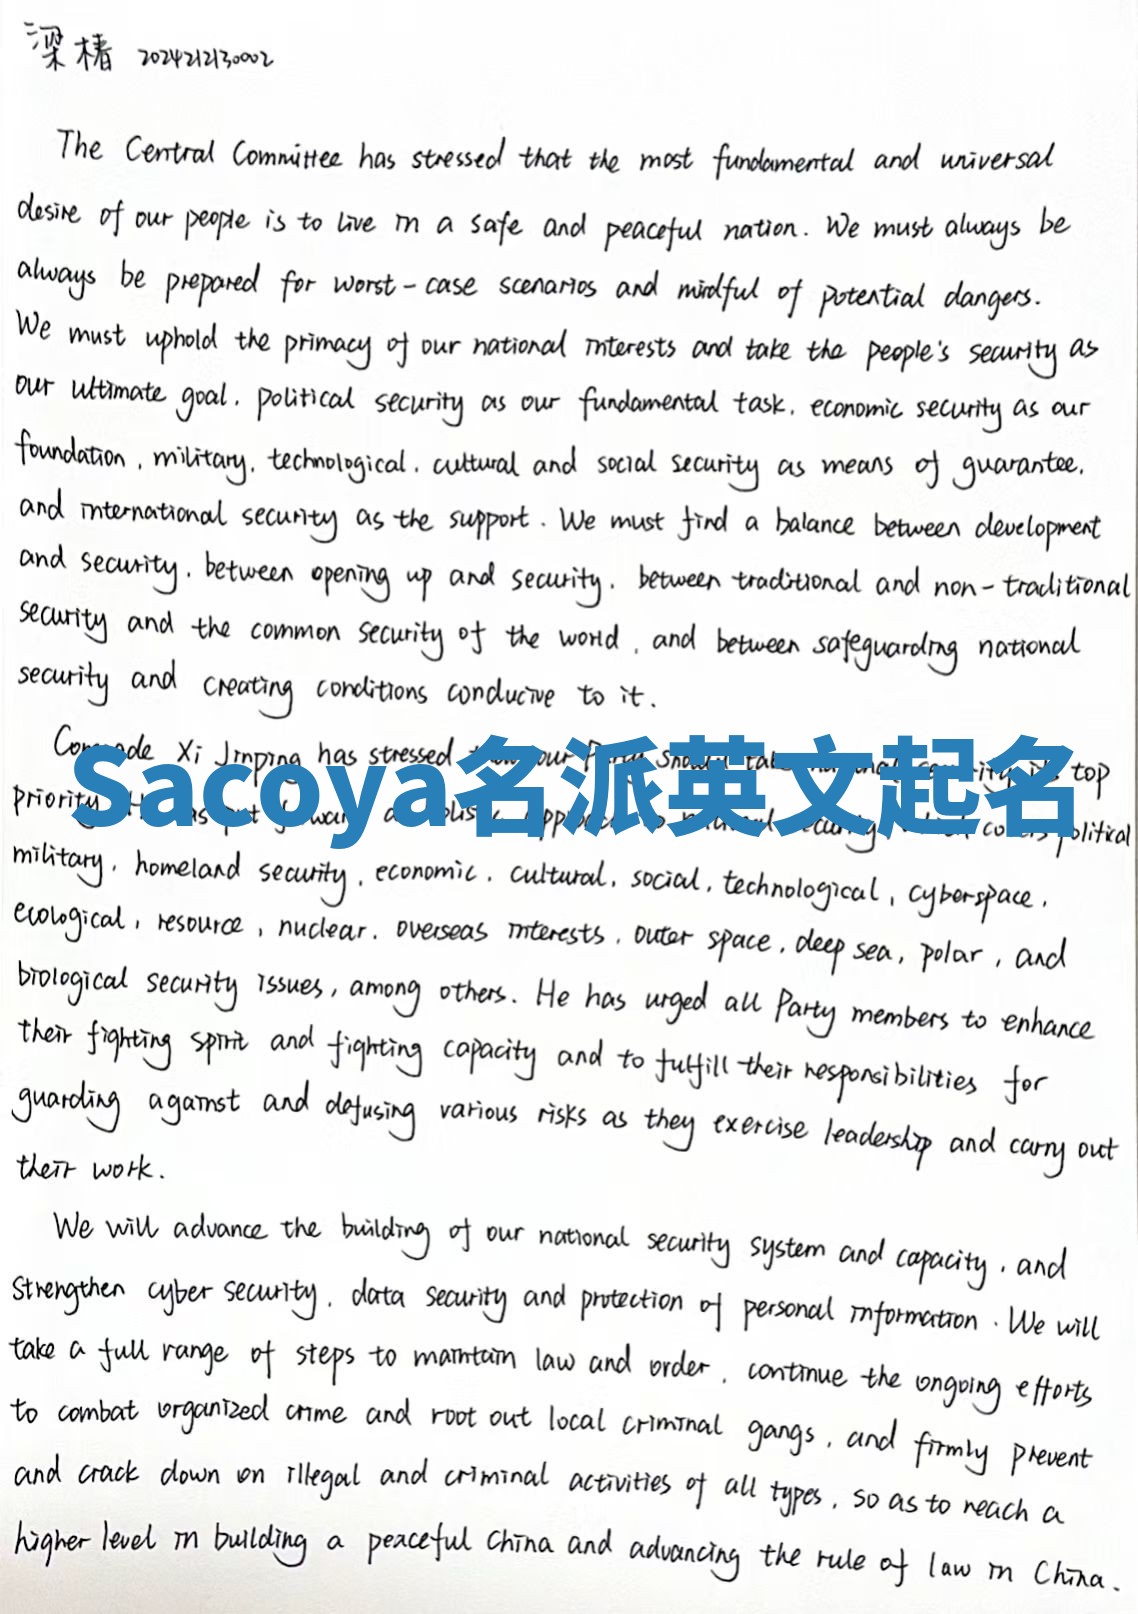 梁椿 2024212130002
The Central Committee has stressed that the most fundamental and universal
desire of our people is to live in a safe and peaceful nation. We must always be
always be prepared for worst-case scenarios and mindful of potential dangers.
We must uphold the primacy of our national interests and take the people's security as
our ultimate goal, political security as our fundamental task, economic security as our
foundation, military, technological, cultural and social security as means of guarantee,
and international security as the support. We must find a balance between development
and security, between opening up and security, between traditional and non-traditional
security and the common security of the world, and between safeguarding national
security and creating conditions conducive to it.
Comrade Xi Jinping has stressed our top
Sacoya名派英文起名
priority. put political
military, homeland security, economic, cultural, social, technological, cyberspace,
ecological, resource, nuclear, overseas interests, outer space, deep sea, polar, and
biological security issues, among others. He has urged all Party members to enhance
their fighting spirit and fighting capacity and to fulfill their responsibilities for
guarding against and defusing various risks as they exercise leadership and carry out
their work.
We will advance the building of our national security system and capacity, and
strengthen cyber security, data security and protection of personal information. We will
take a full range of steps to maintain law and order, continue the ongoing efforts
to combat organized crime and root out local criminal gangs, and firmly prevent
and crack down on illegal and criminal activities of all types, so as to reach a
higher level in building a peaceful China and advancing the rule of law in China.